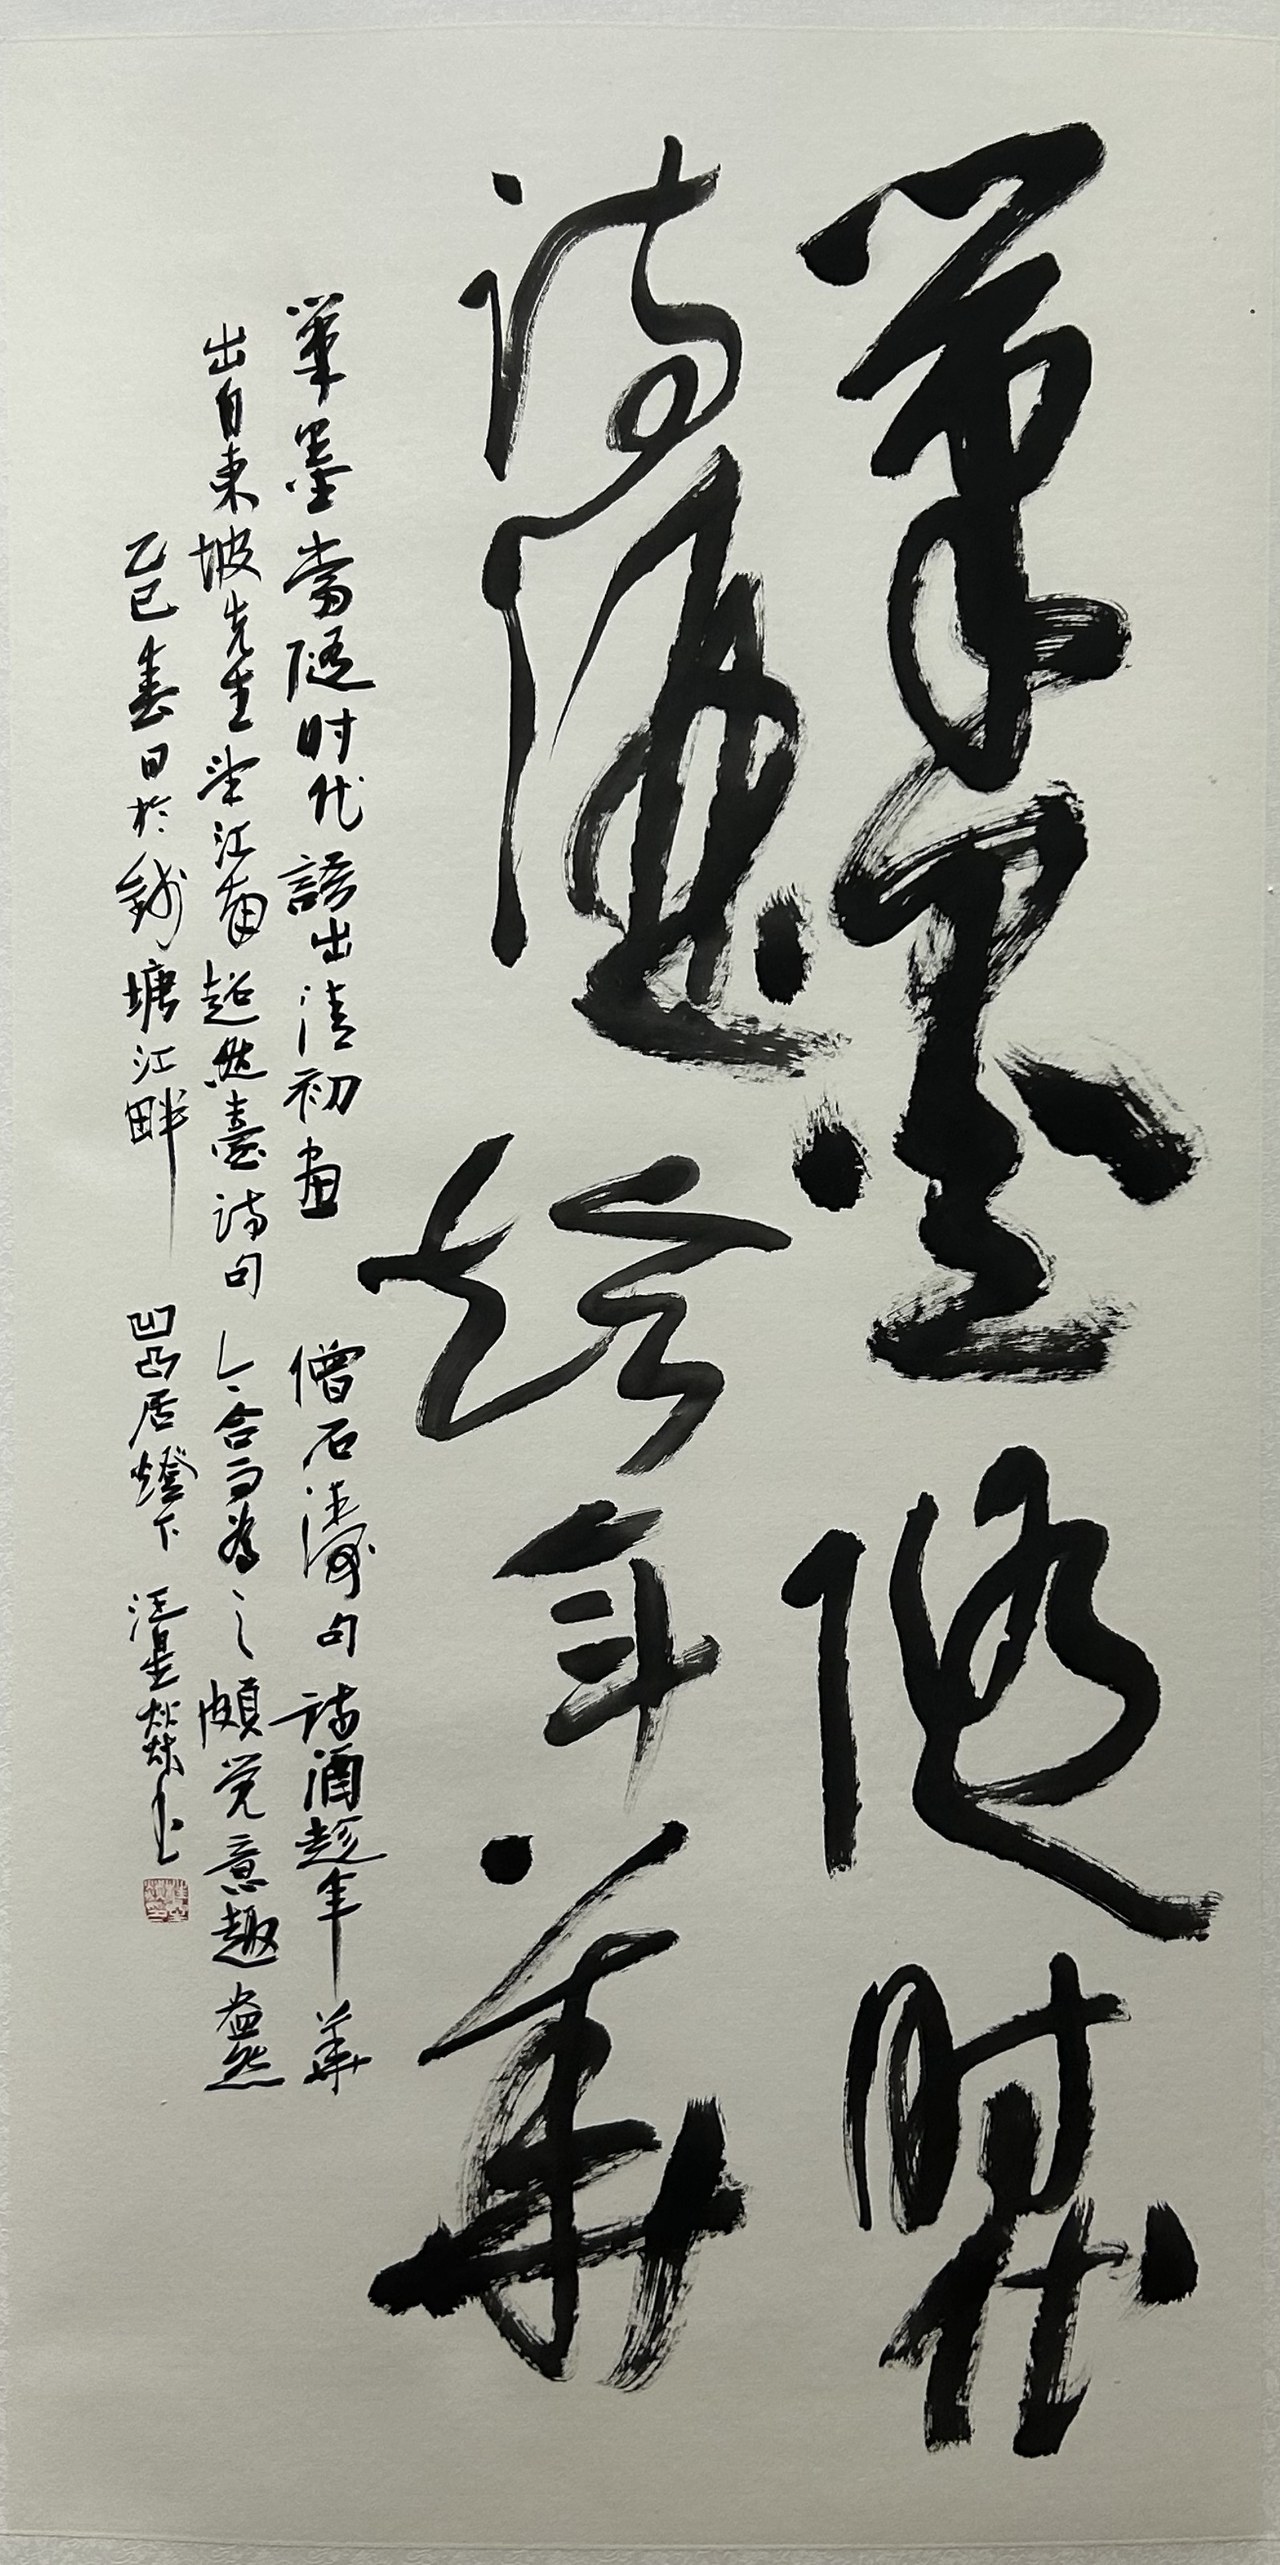 筆墨隨時代
詩酒趁年華
筆墨當隨时代語出清初畫僧石濤句詩酒趁年華
出自東坡先生望江南超然臺詩句今合而為之頗覚意趣盎然
乙巳春日於錢塘江畔凹凸居燈下汪星燚书